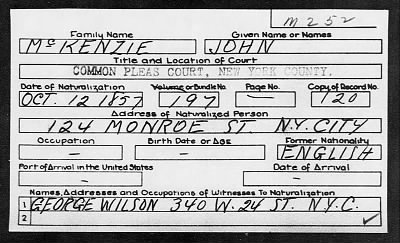 M 252
Family Name Given Name or Names
McKENZIE JOHN
Title and Location of Court
COMMON PLEAS COURT, NEW YORK COUNTY.
Date of Naturalization Volume or Bundle No. Page No. Copy of Record No.
OCT. 12 1857 197 — 120
Address of Naturalized Person
124 MONROE ST N.Y. CITY
Occupation Birth Date or Age Former Nationality
— — ENGLISH
Port of Arrival in the United States Date of Arrival
— —
Names, Addresses and Occupations of Witnesses To Naturalization
1 GEORGE WILSON 340 W. 24 ST. N.Y.C.
2